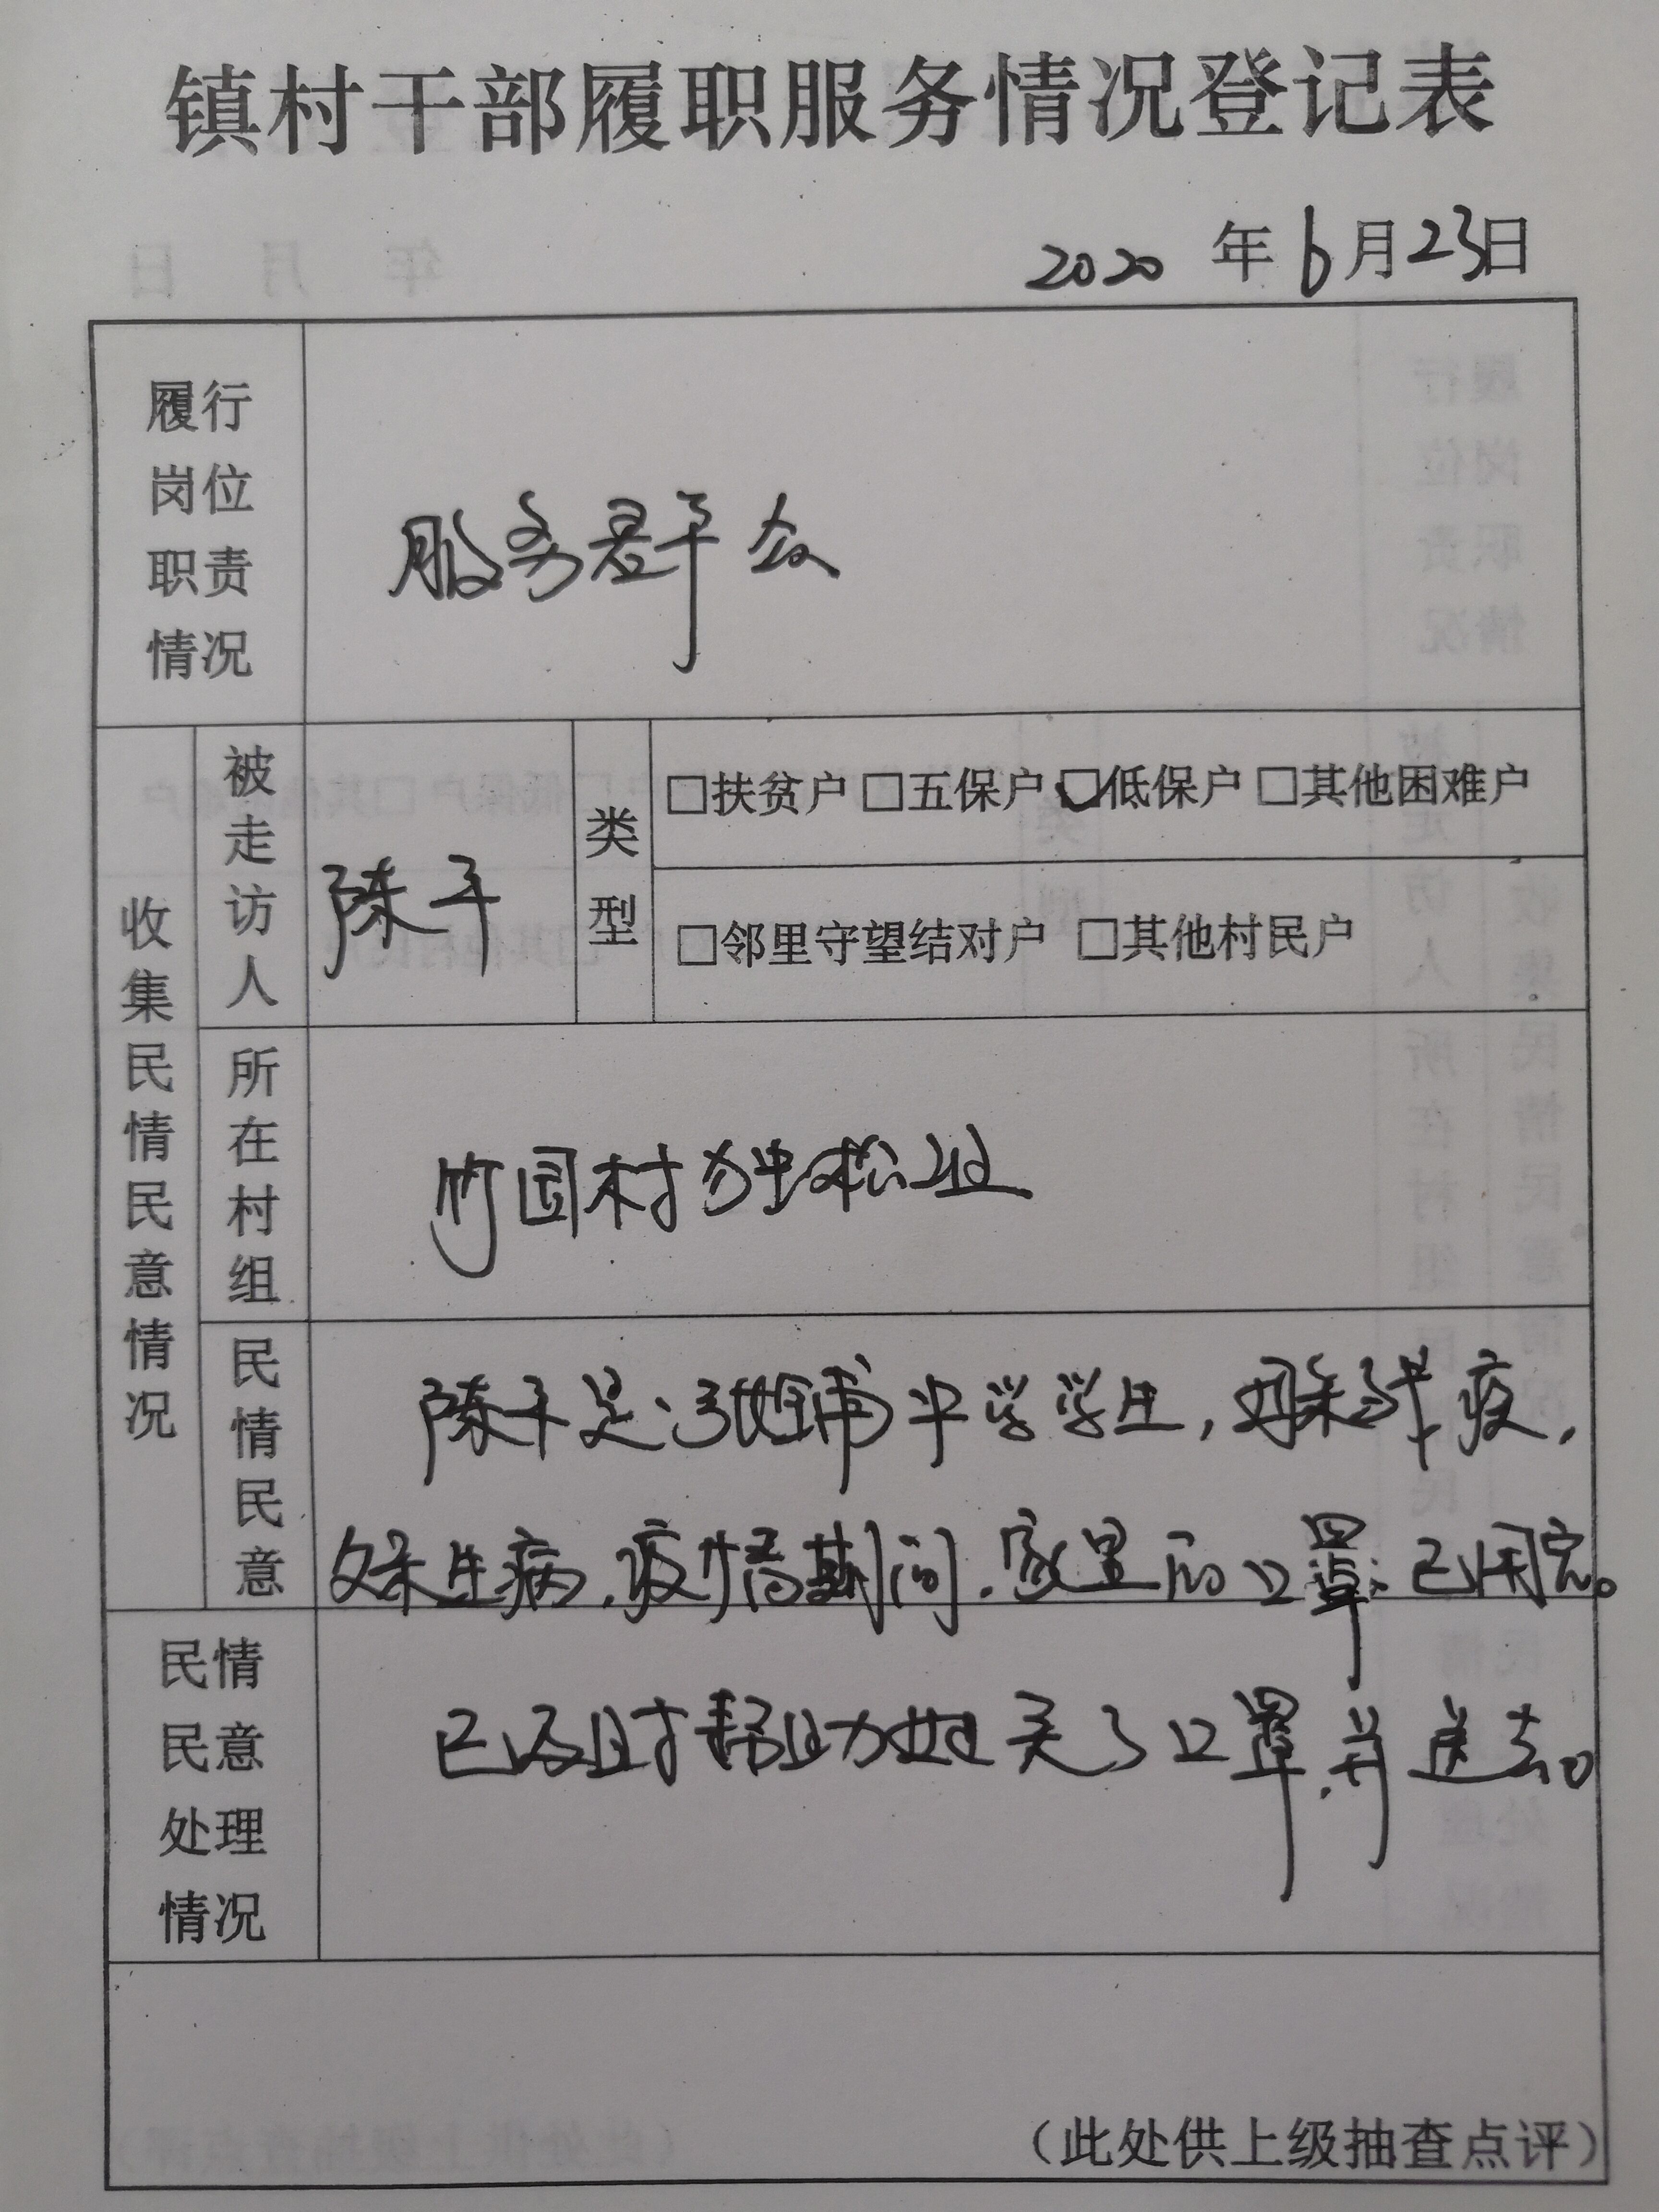 镇村干部履职服务情况登记表
2020年6月23日
履行岗位职责情况
服务群众
收集民情民意情况
被走访人
陈千
类型
□扶贫户 □五保户 ☑低保户 □其他困难户
□邻里守望结对户 □其他村民户
所在村组
竹园村
民情民意
陈千是冯姓铺中学学生,母亲残疾,
父亲生病,疫情期间,家里的口罩已用完。
民情民意处理情况
已及时帮助她买了口罩,并送去。
(此处供上级抽查点评)